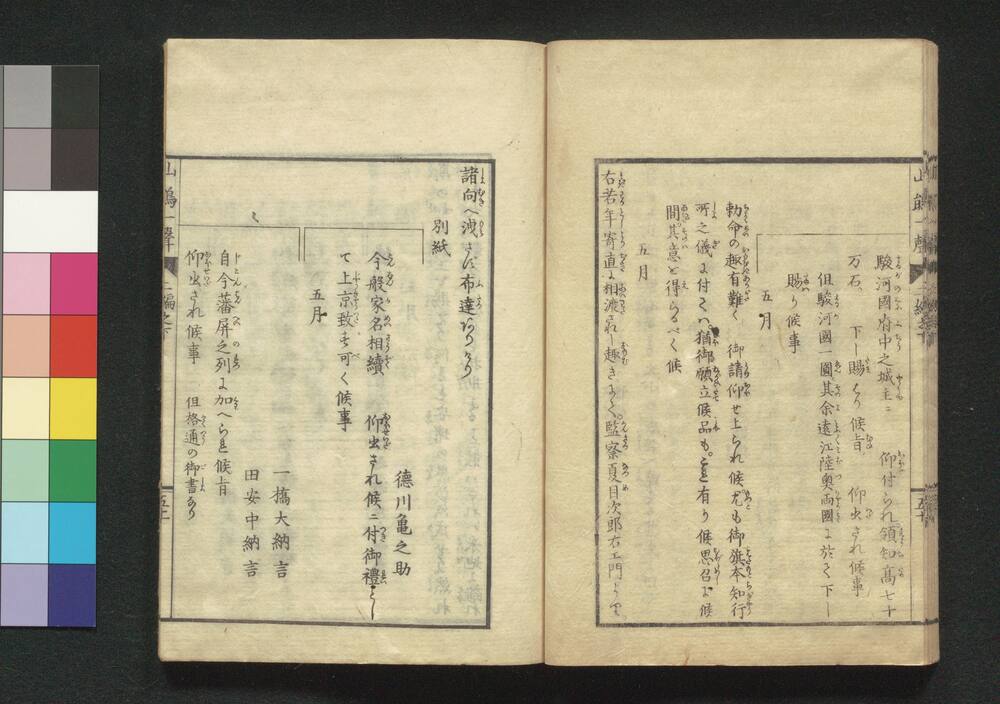 駿河國府中之城主ニ　仰付られ領知高七十
万石、　下し賜はり候旨　仰出され候事
但駿河國一圓其余遠江陸奥両國に於て下し
賜り候事
五月
勅命の趣有難く　御請仰せ上られ候尤も御旗本知行
所之儀に付ては猶御願立候品も
有り候思召に候
間其意を得らるべく候
五月
右若年寄
直に相渡され趣きにて監察夏目次郎右エ門より
諸向へ洩さず布達
別紙
徳川亀之助
今般家名相續　仰出され候ニ付御禮とし
て上京致す可く候事
五月
一橋大納言
田安中納言
自今藩屏之列に加へられ候旨
仰出され候事　但格通の御書あり